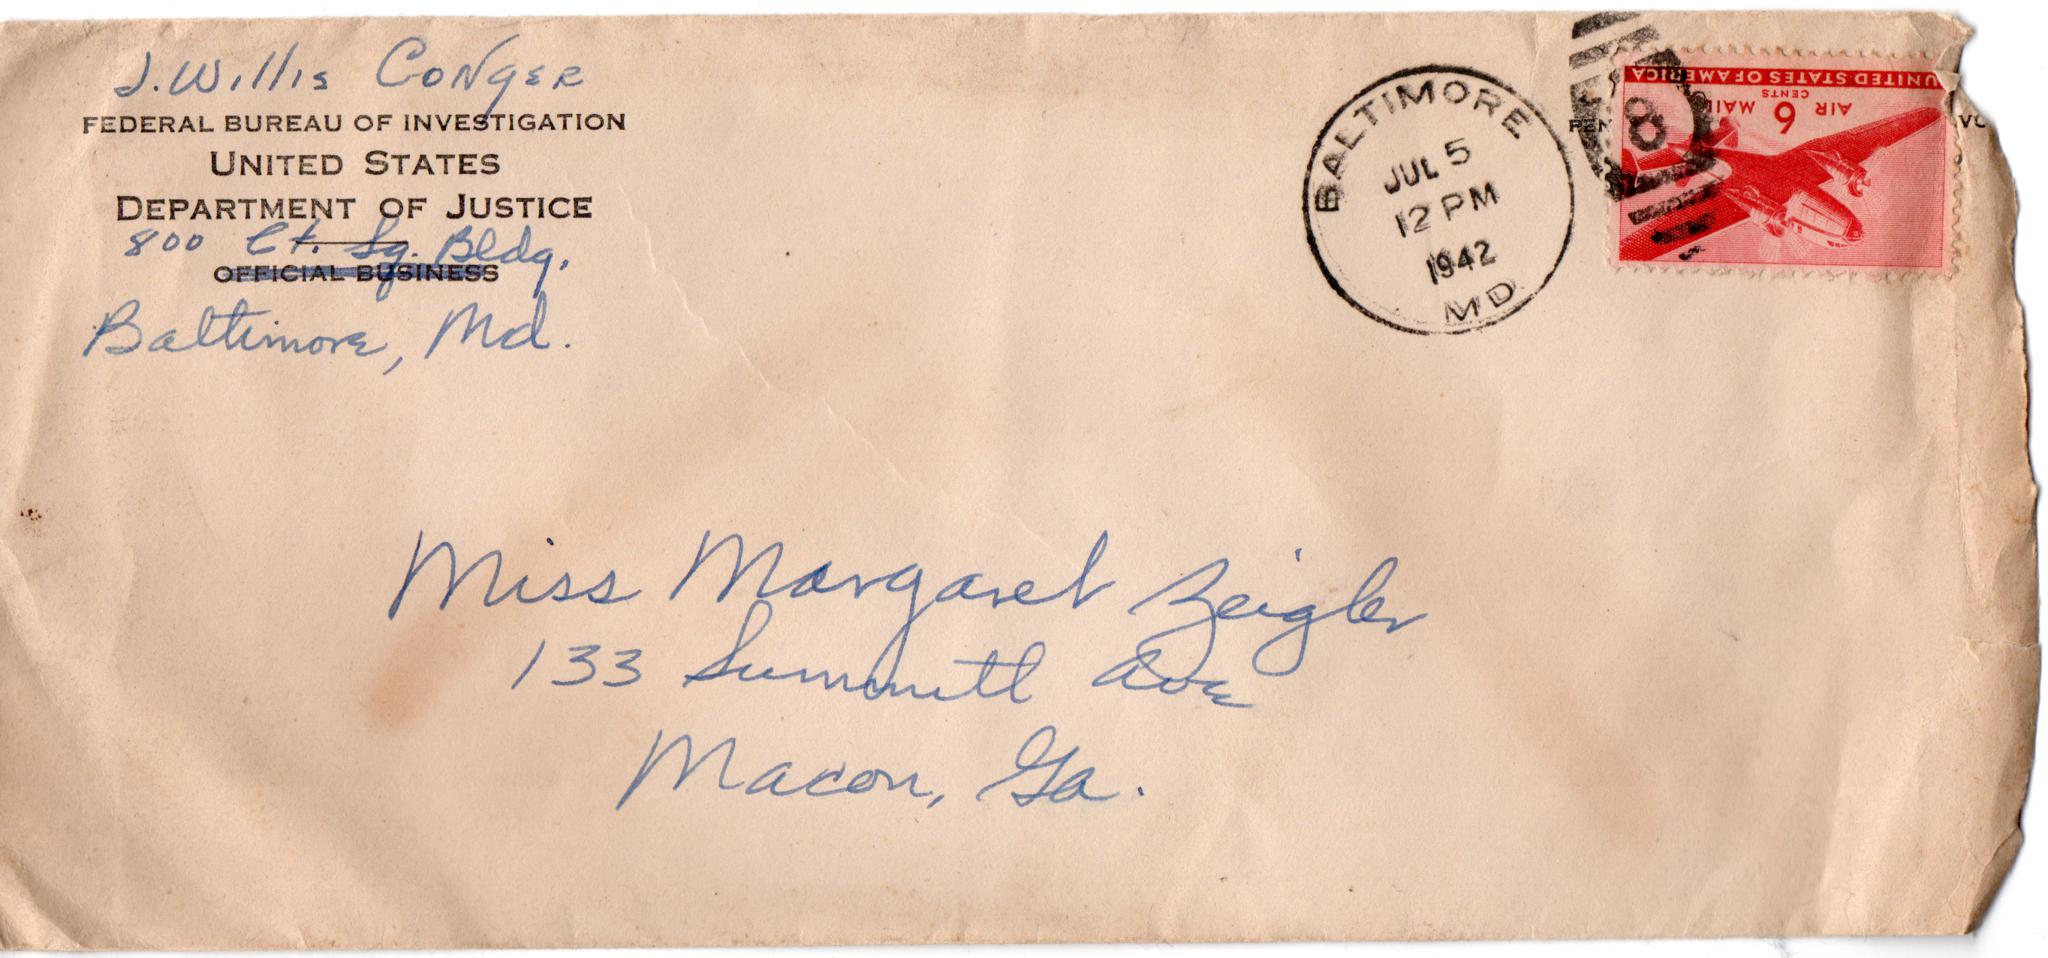 J. Willis Conger
FEDERAL BUREAU OF INVESTIGATION
UNITED STATES
DEPARTMENT OF JUSTICE
800 Ct. Sq. Bldg.
OFFICIAL BUSINESS
Baltimore, Md.
BALTIMORE
JUL 5
12 PM
1942
MD
8
UNITED STATES OF AMERICA
AIR 6 MAIL
CENTS
Miss Margaret Zeigler
133 Summitt Ave
Macon, Ga.